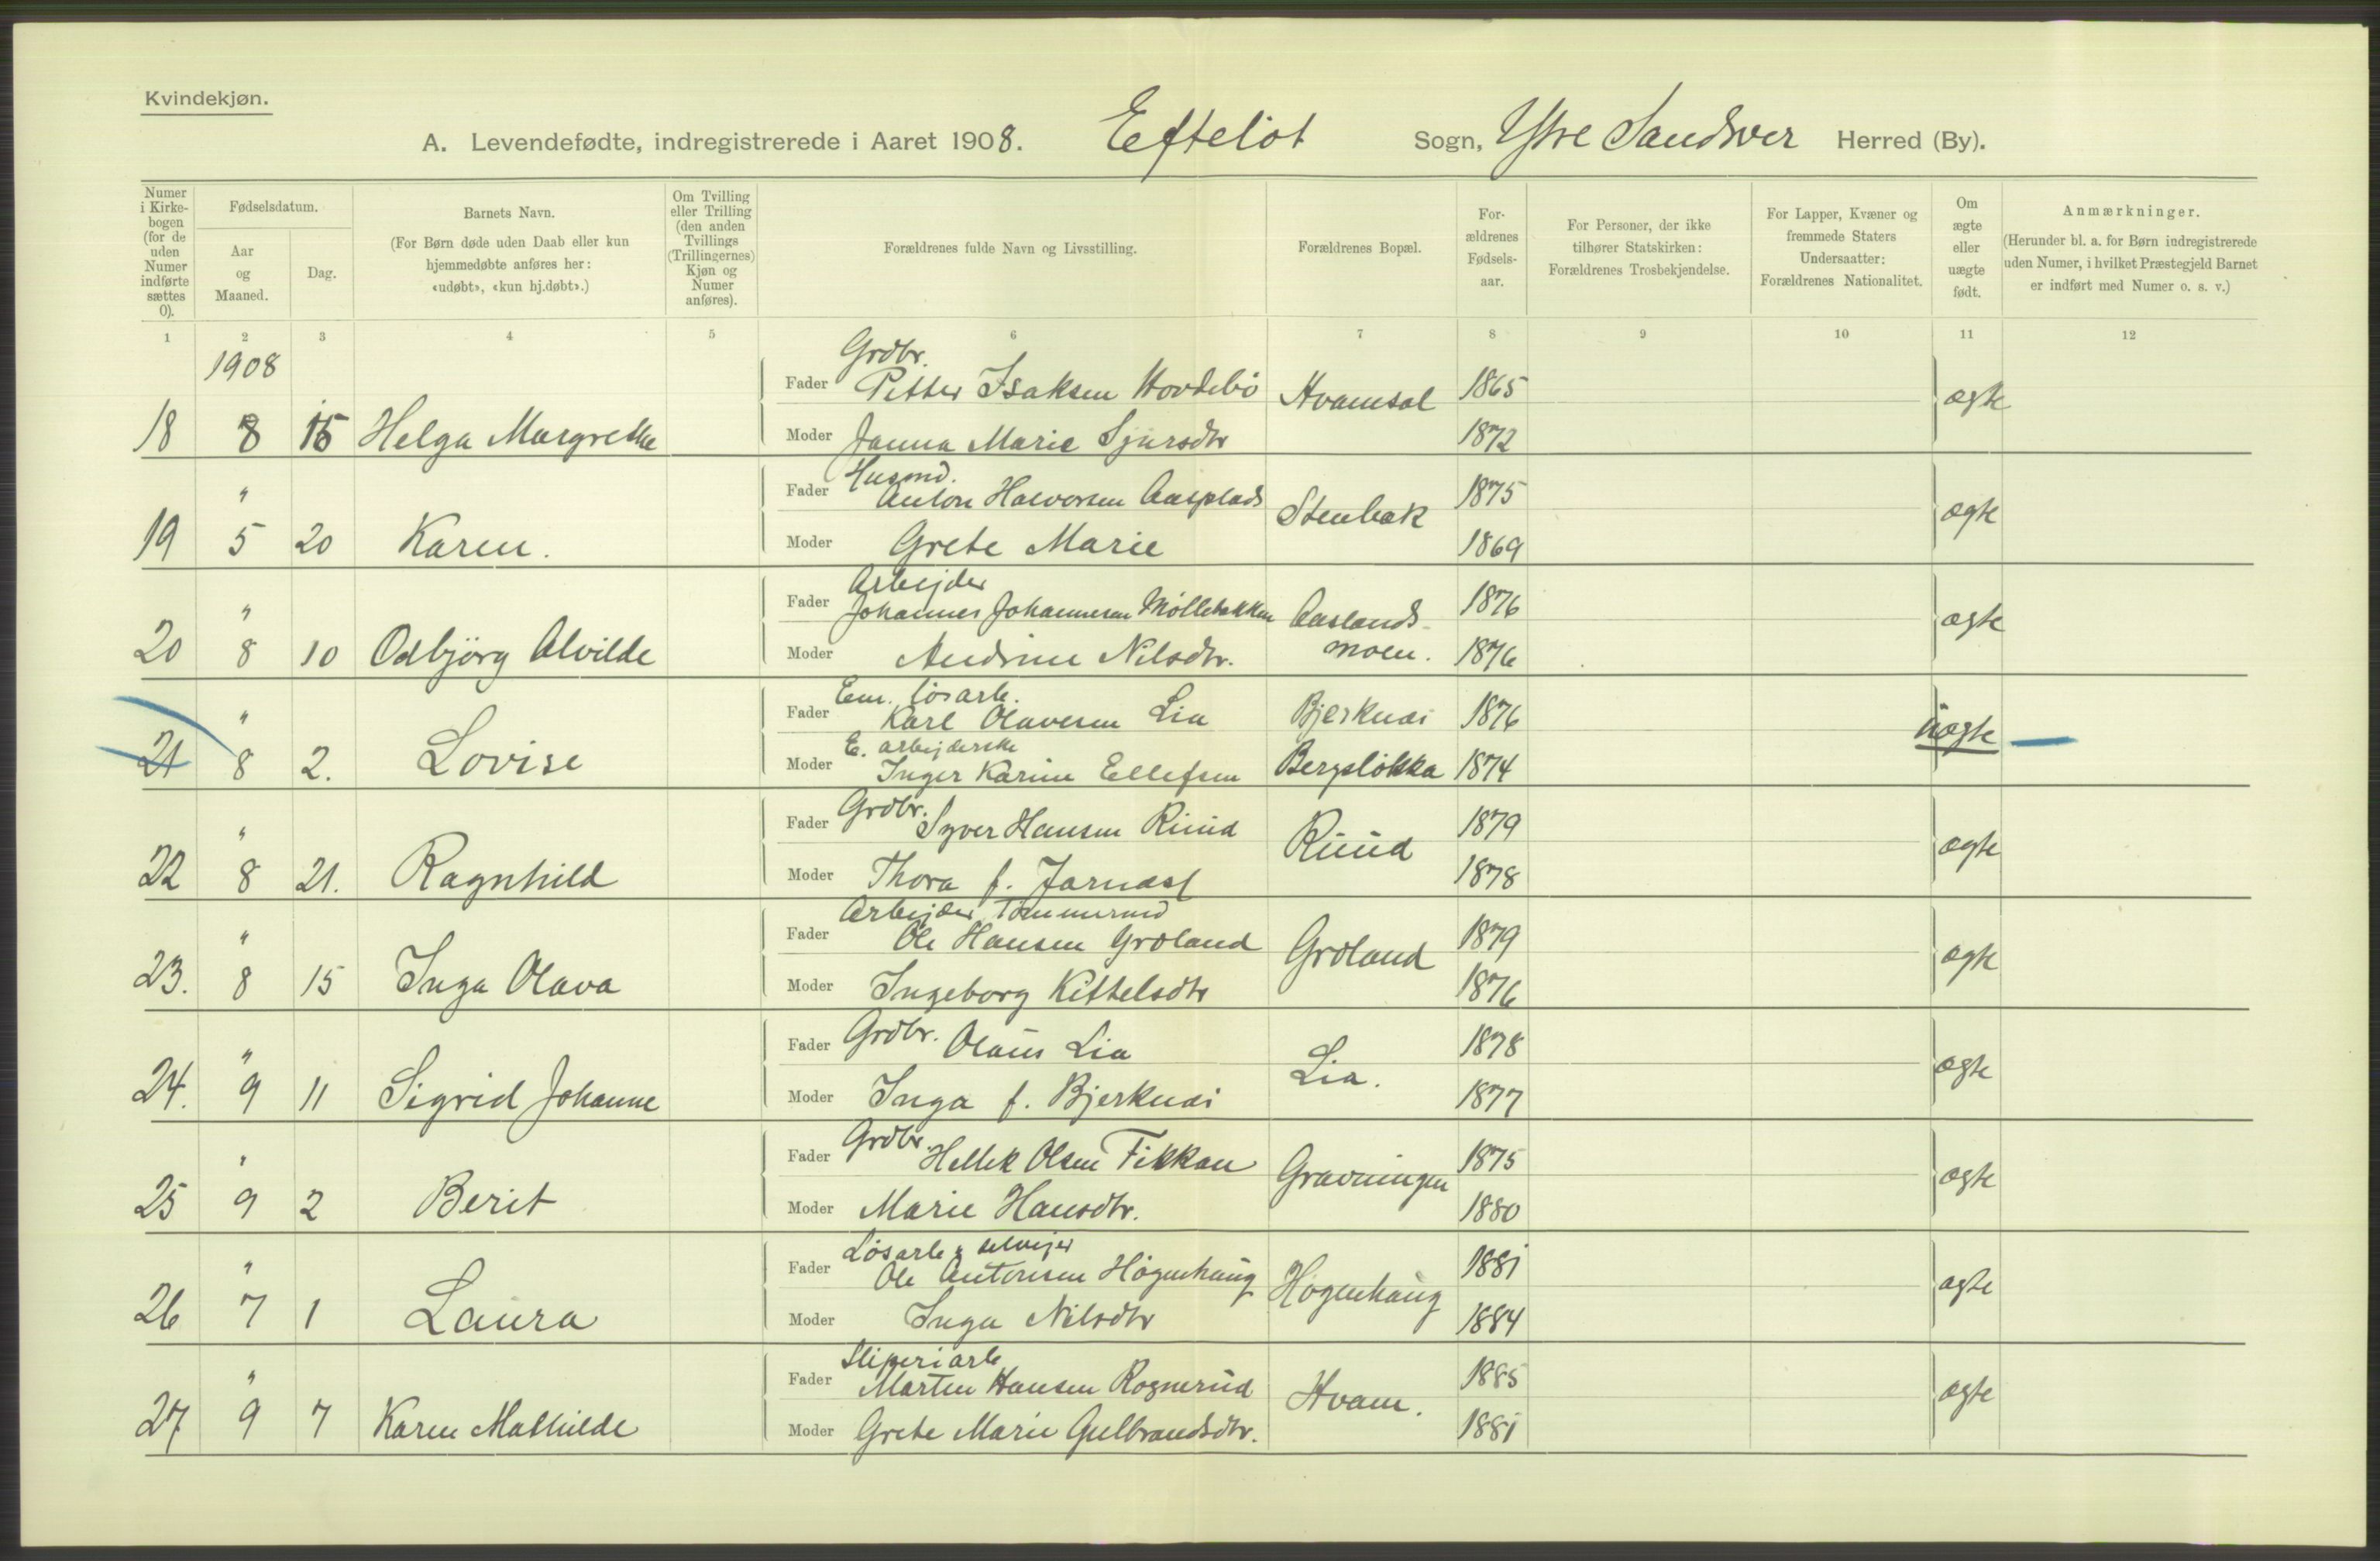 Kvindekjøn.
A. Levendefødte, indregistrerede i Aaret 1908. Efteløt Sogn, Ytre Sandsver Herred (By).
Numer i Kirke-bogen (for de uden Numer indførte sættes 0).
Fødselsdatum.
Aar og Maaned.
Dag.
Barnets Navn.
(For Børn døde uden Daab eller kun hjemmedøbte anføres her: «udøbt», «kun hj.døbt».)
Om Tvilling eller Trilling (den anden Tvillings (Trillingernes) Kjøn og Numer anføres).
Forældrenes fulde Navn og Livsstilling.
Forældrenes Bopæl.
For-ældrenes Fødsels-aar.
For Personer, der ikke tilhører Statskirken: Forældrenes Trosbekjendelse.
For Lapper, Kvæner og fremmede Staters Undersaatter: Forældrenes Nationalitet.
Om ægte eller uægte født.
Anmærkninger.
(Herunder bl. a. for Børn indregistrerede uden Numer, i hvilket Præstegjeld Barnet er indført med Numer o. s. v.)
1 2 3 4 5 6 7 8 9 10 11 12
1908
Grdbr.
Fader Petter Isaksen Hovdebø Hvamsal 1865 ægte
18 8 15 Helga Margrethe Moder Janna Marie Sjursdtr 1872
Husmd.
" Fader Anton Halvorsen Aasplads Stenbæk 1875 ægte
19 5 20 Karen. Moder Grete Marie 1869
Arbejder
" Fader Johannes Johannesen Møllebakken Aaslands- 1876 ægte
20 8 10 Odbjörg Alvilde Moder Andrine Nilsdtr. moen. 1876
Em. løsarb.
" Fader Karl Olavesen Lia Bjerknæs 1876 uægte
E. arbejderske
21 8 2. Lovise Moder Inger Karine Ellefsen Bergsløkka 1874
Grdbr.
" Fader Syver Hansen Ruud Ruud 1879 ægte
22 8 21. Ragnhild Moder Thora f. Jarnæs 1878
Arbejder, Tømmermd
" Fader Ole Hansen Grøland Grøland 1879 ægte
23. 8 15 Inga Olava Moder Ingeborg Kittelsdtr 1876
" Fader Grdbr. Olaus Lia Lia. 1878 ægte
24. 9 11 Sigrid Johanne Moder Inga f. Bjerknæs 1877
Grdbr.
" Fader Hellek Olsen Fikkan Gravningen 1875 ægte
25 9 2 Berit Moder Marie Hansdtr. 1880
Løsarb & selvejer
" Fader Ole Antonsen Högenhaug Högenhaug 1881 ægte
26 7 1 Laura Moder Inga Nilsdtr 1884
Sliperiarb
" Fader Marten Hansen Rognerud Hvam. 1885 ægte
27 9 7 Karen Mathilde Moder Grete Marie Gulbrandsdtr. 1881